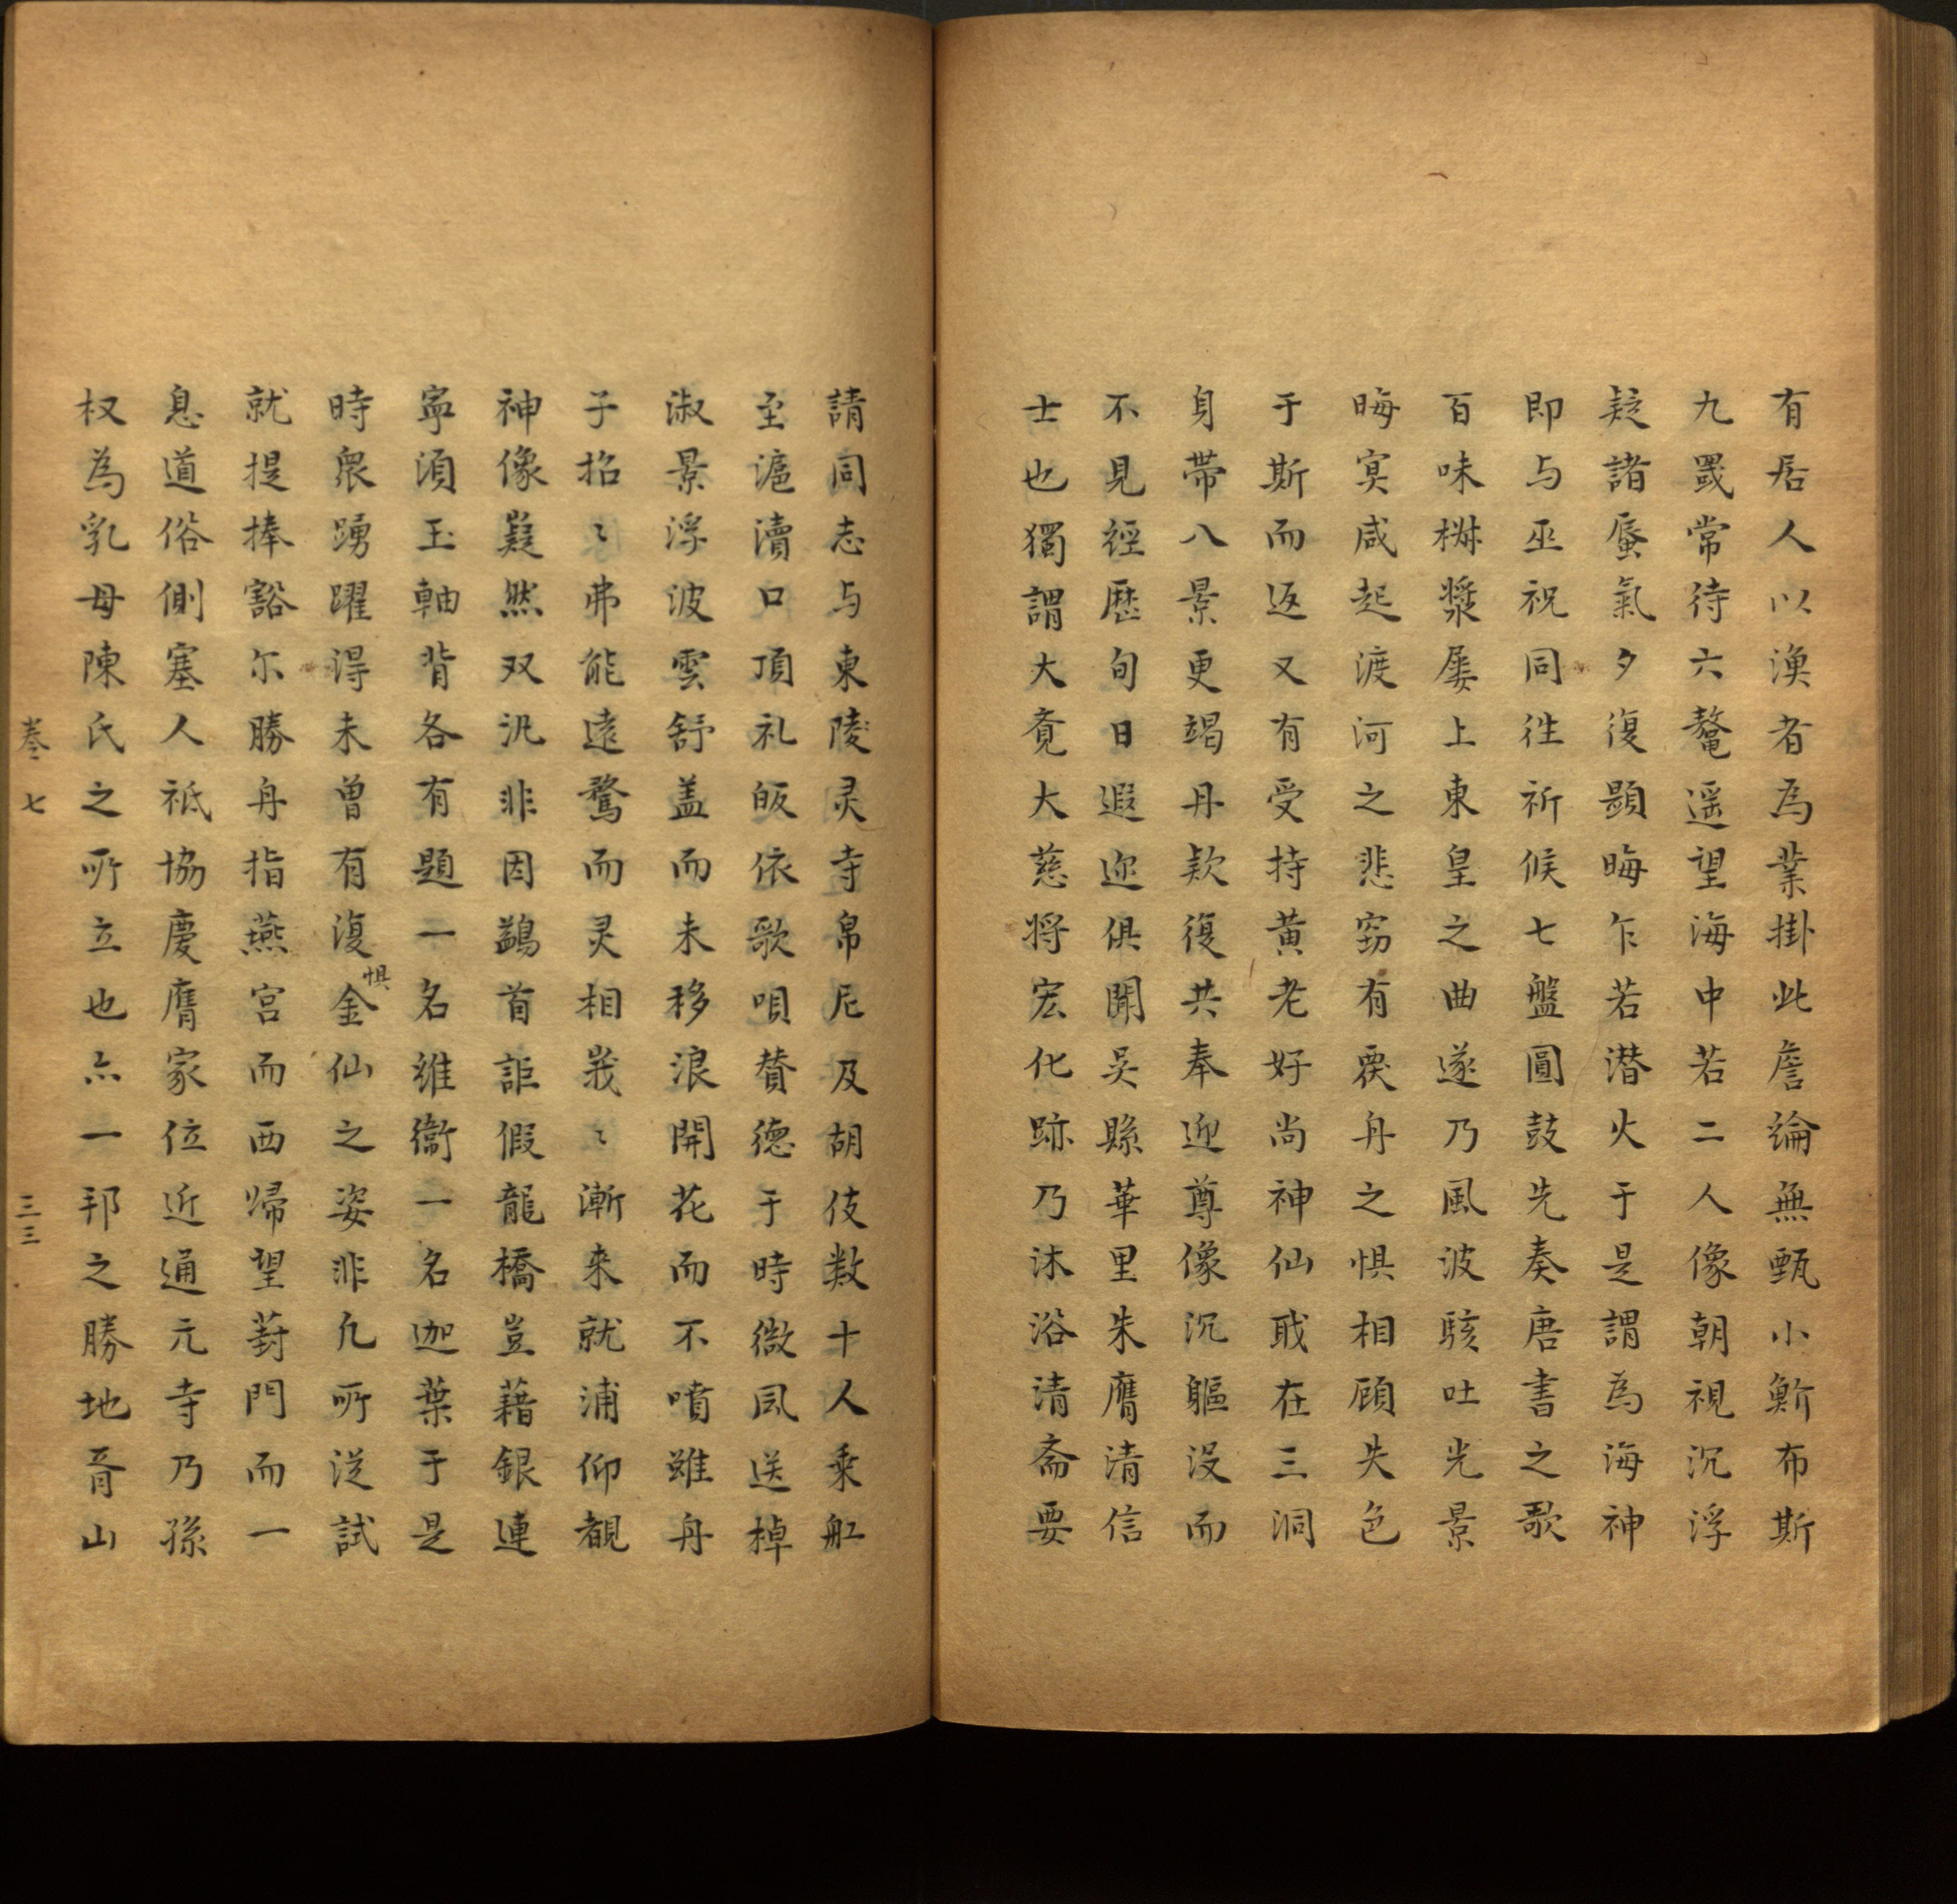 有居人以漁者為業掛此詹綸無甄小鮮布斯
九罭常待六鼇遥望海中若二人像朝視沉浮
疑諸蜃氣夕復顕晦乍若潜火于是謂為海神
即与巫祝同徃祈候七盤圓鼓先奏唐書之歌
百味椒漿屡上東皇之曲遂乃風波駭吐光景
晦冥咸起渡河之悲窃有覆舟之惧相顧失色
于斯而返又有受持黄老好尚神仙職在三洞
身帶八景更竭丹欵復共奉迎尊像沉軀没而
不見經歴旬日遐迩俱聞吴縣華里朱膺清信
士也獨謂大覔大慈将宏化跡乃沐浴清斋要
請同志与東陵灵寺帛尼及胡伎数十人乗舡
至滬瀆口頂礼皈依歌唄賛德于時微凨送棹
淑景浮波雲舒盖而未移浪開花而不噴雖舟
子招〻弗能遠騖而灵相峩〻漸来就浦仰觀
神像嶷然双汎非因鷁首詎假龍橋豈藉銀連
寕湏玉軸背各有題一名維衛一名迦葉于是
時衆踴躍淂未曽有復惧金仙之姿非凢所従試
就提捧豁尓勝舟指燕宫而西帰望葑門而一
息道俗側塞人祗協慶膺家位近通元寺乃孫
权為乳母陳氏之所立也亦一邦之勝地晋山
卷七
三三